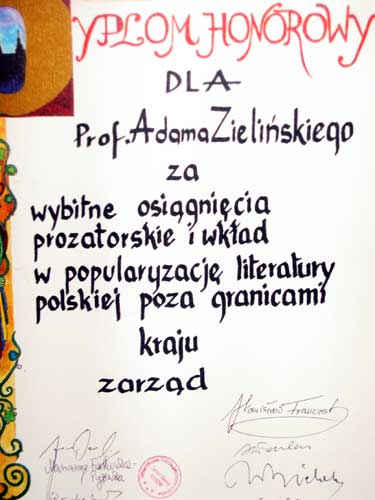 DYPLOM HONOROWY
DLA
Prof. Adama Zielińskiego
za
wybitne osiągnięcia
prozatorskie i wkład
w popularyzację literatury
polskiej poza granicami
kraju
zarząd
Stanisław